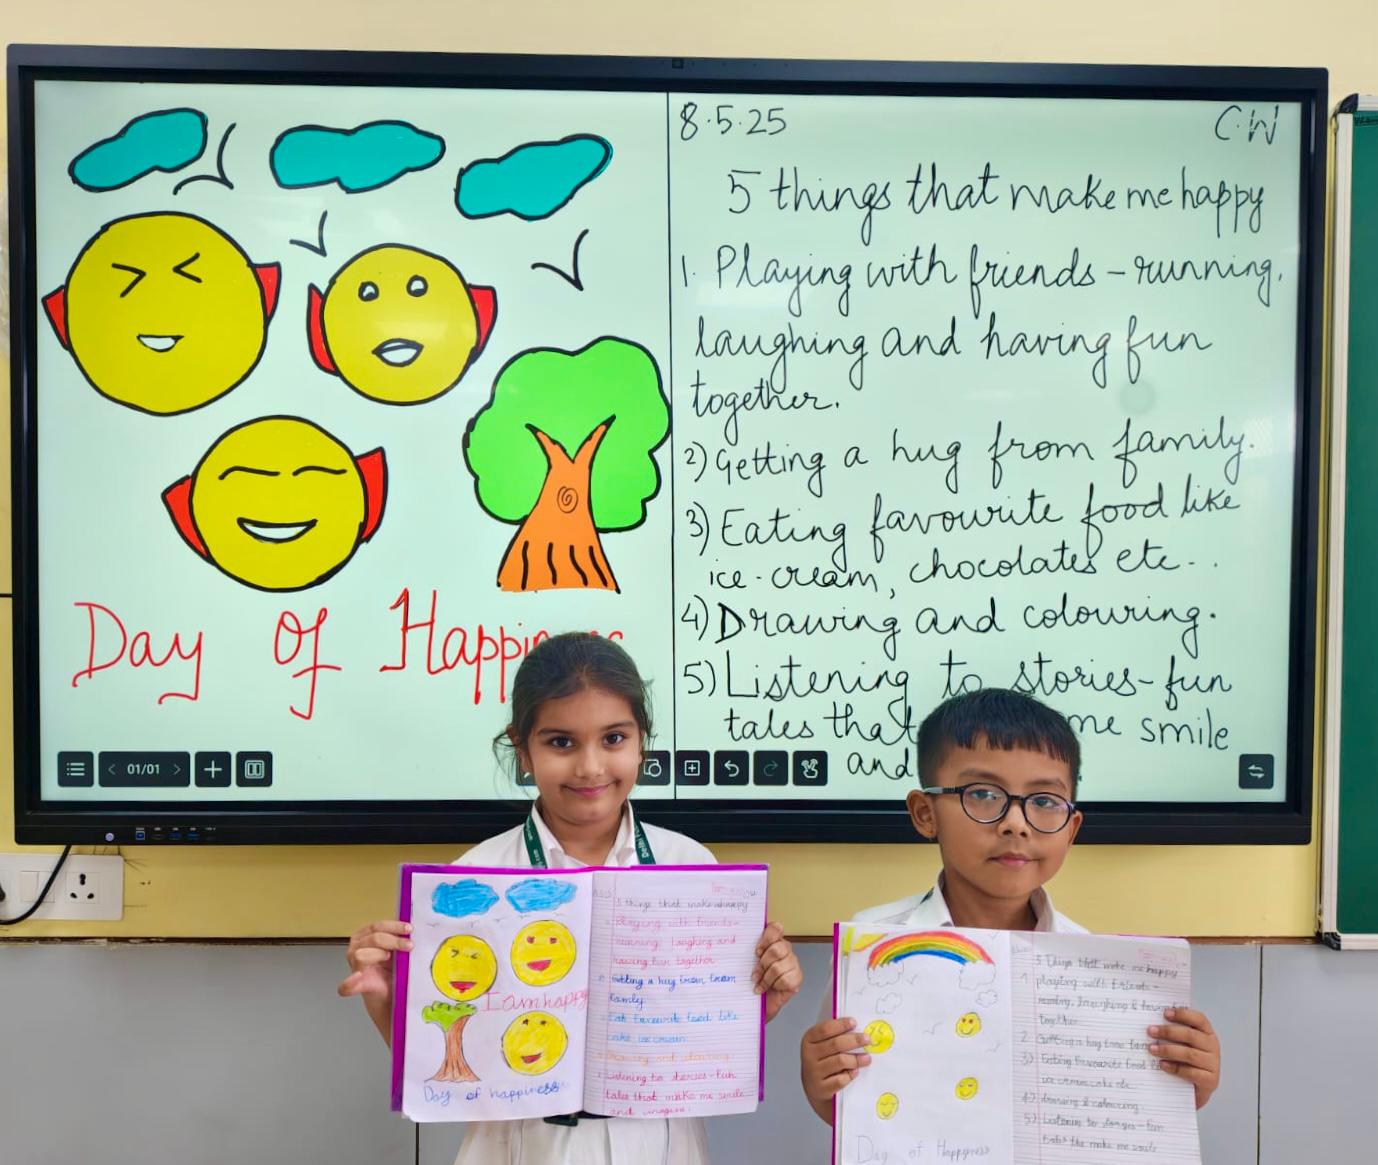 8.5.25
C.W
5 things that make me happy
1. Playing with friends - running,
laughing and having fun
together.
2) Getting a hug from family.
3) Eating favourite food like
ice-cream, chocolates etc...
4) Drawing and colouring.
5) Listening to stories - fun
tales that me smile
and
Day of
01/01
I am happy
Day of happiness
5 things that make happy
Playing with friends-
running, laughing and
having fun together
Getting a hug from
family.
Eat favourite food like
cake ice cream
Drawing and
Listening to stories - fun
tales that make me smile
and imagine.
Day of Happyness
5 Things that make me happy
1 playing with friends-
together
2. Getting a hug
3) Eating favourite food
ice cream, cake etc.
4) drawing & colouring
5)
me smile